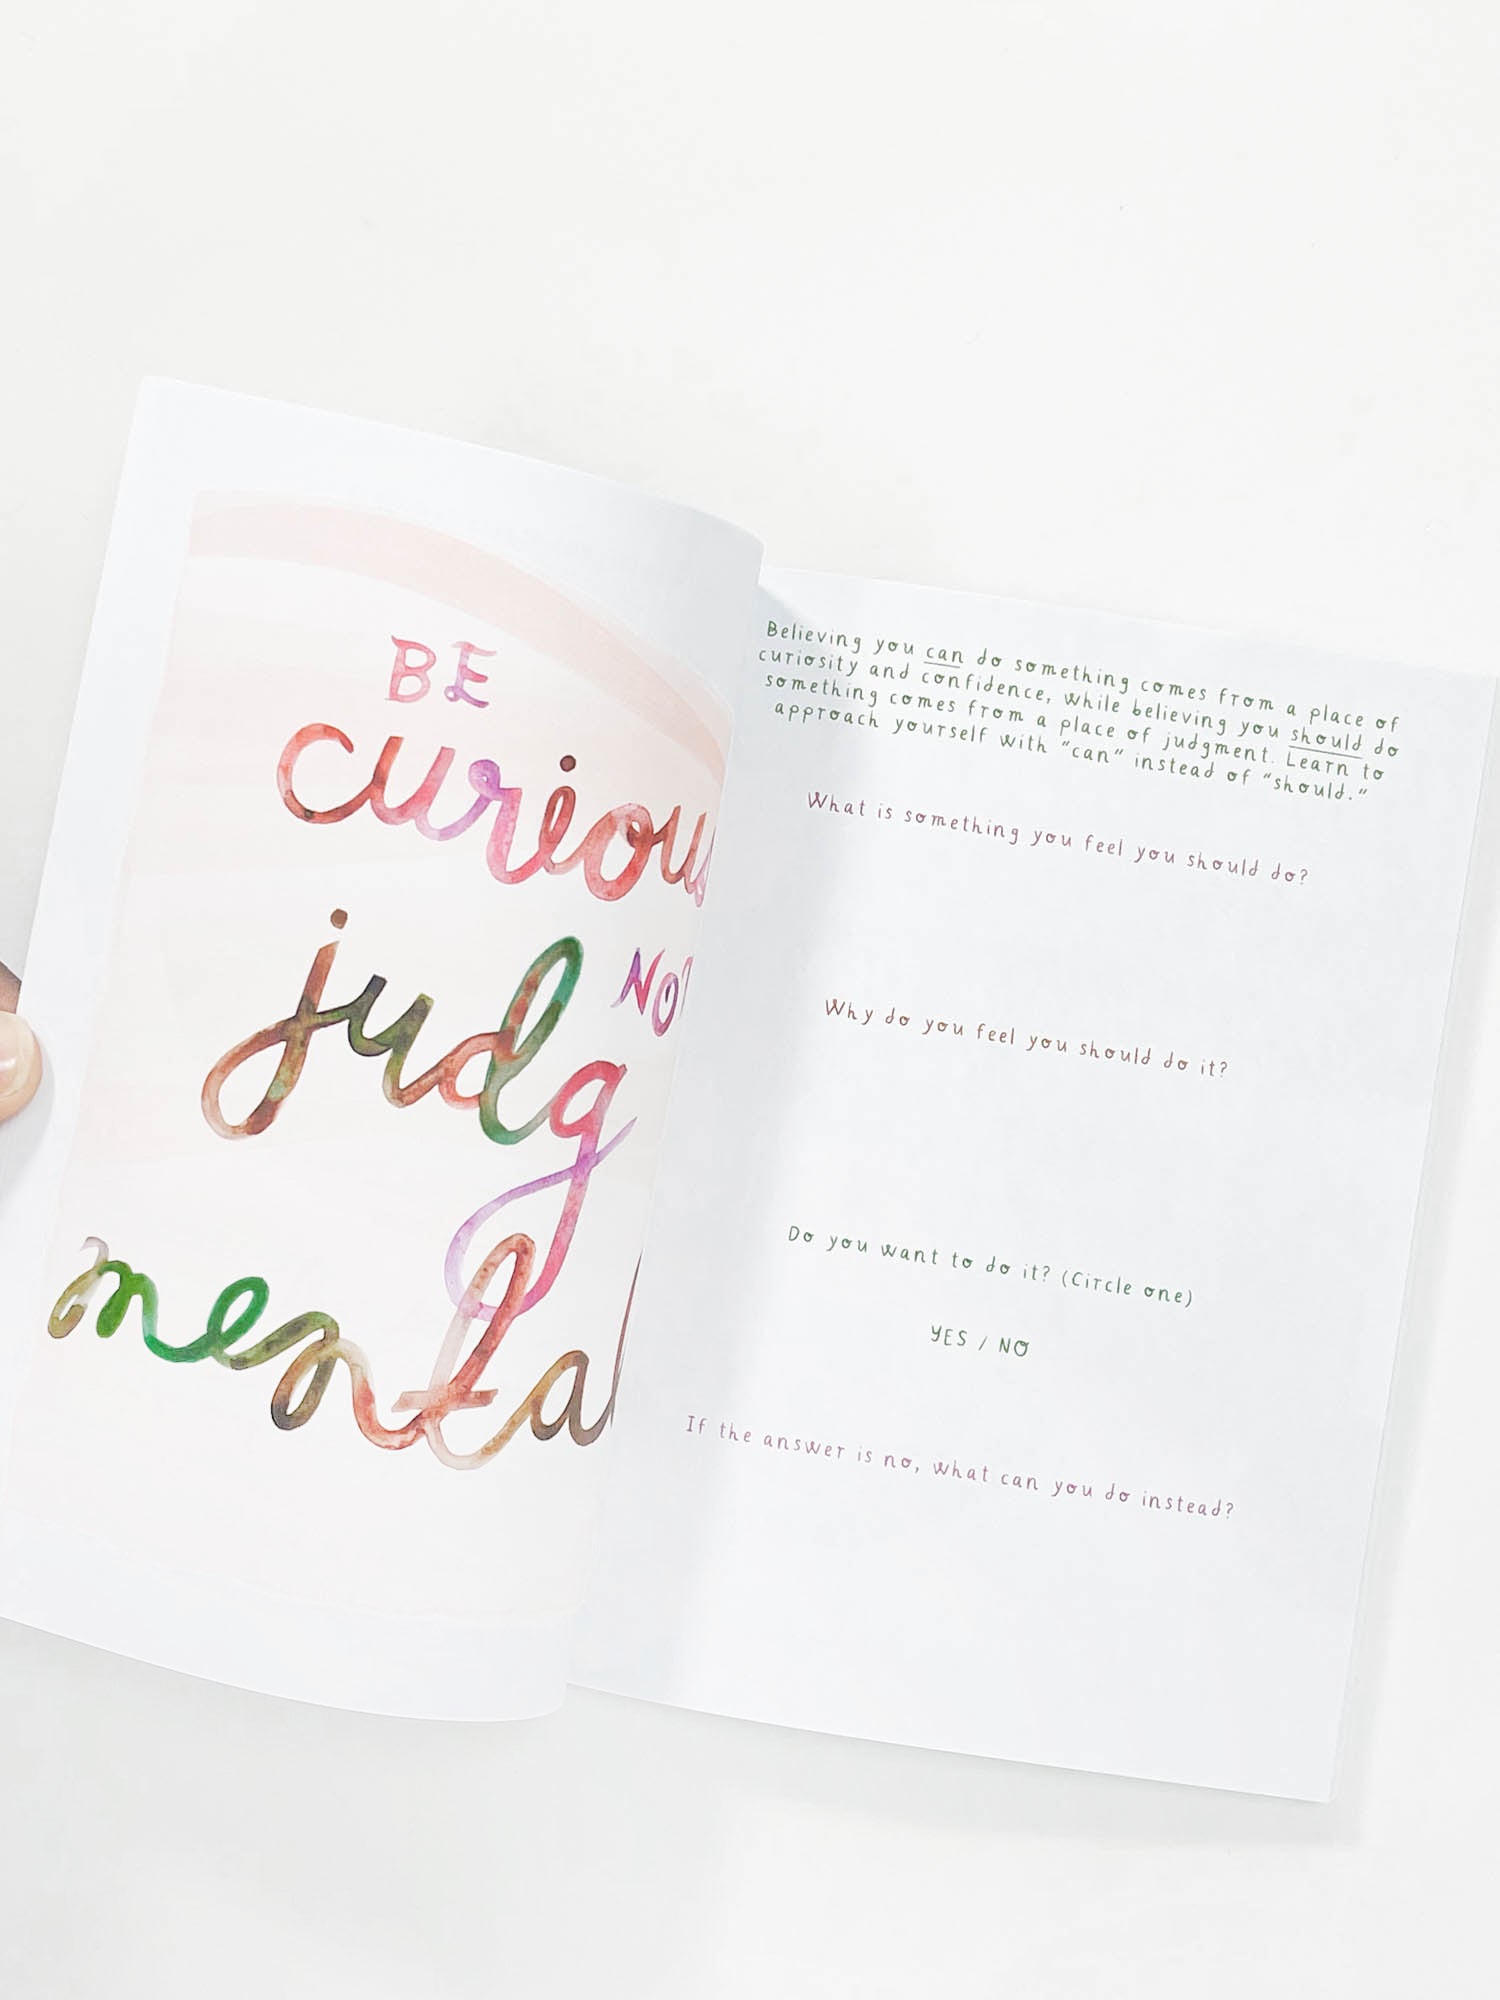 BE
curious
NOT
judg
mental
Believing you can do something comes from a place of
curiosity and confidence, while believing you should do
something comes from a place of judgment. Learn to
approach yourself with "can" instead of "should."
What is something you feel you should do?
Why do you feel you should do it?
Do you want to do it? (Circle one)
YES / NO
If the answer is no, what can you do instead?